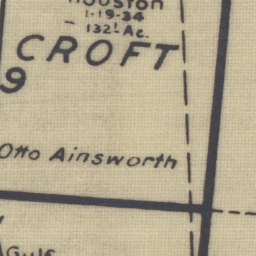 Houston
1-19-34
132' Ac.
CROFT
9
Otto Ainsworth
Gulf